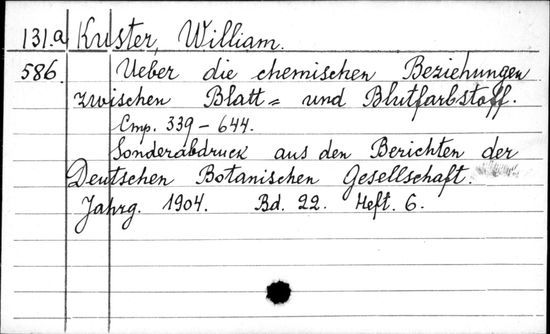 131.a Kuster, William.
586. Ueber die chemischen Beziehungen
zwischen Blatt= und Blutfarbstoff.
Стр. 339-644.
Sonderabdruck aus den Berichten der
Deutschen Botanischen Gesellschaft.
Jahrg. 1904. Bd. 22. Heft. 6.